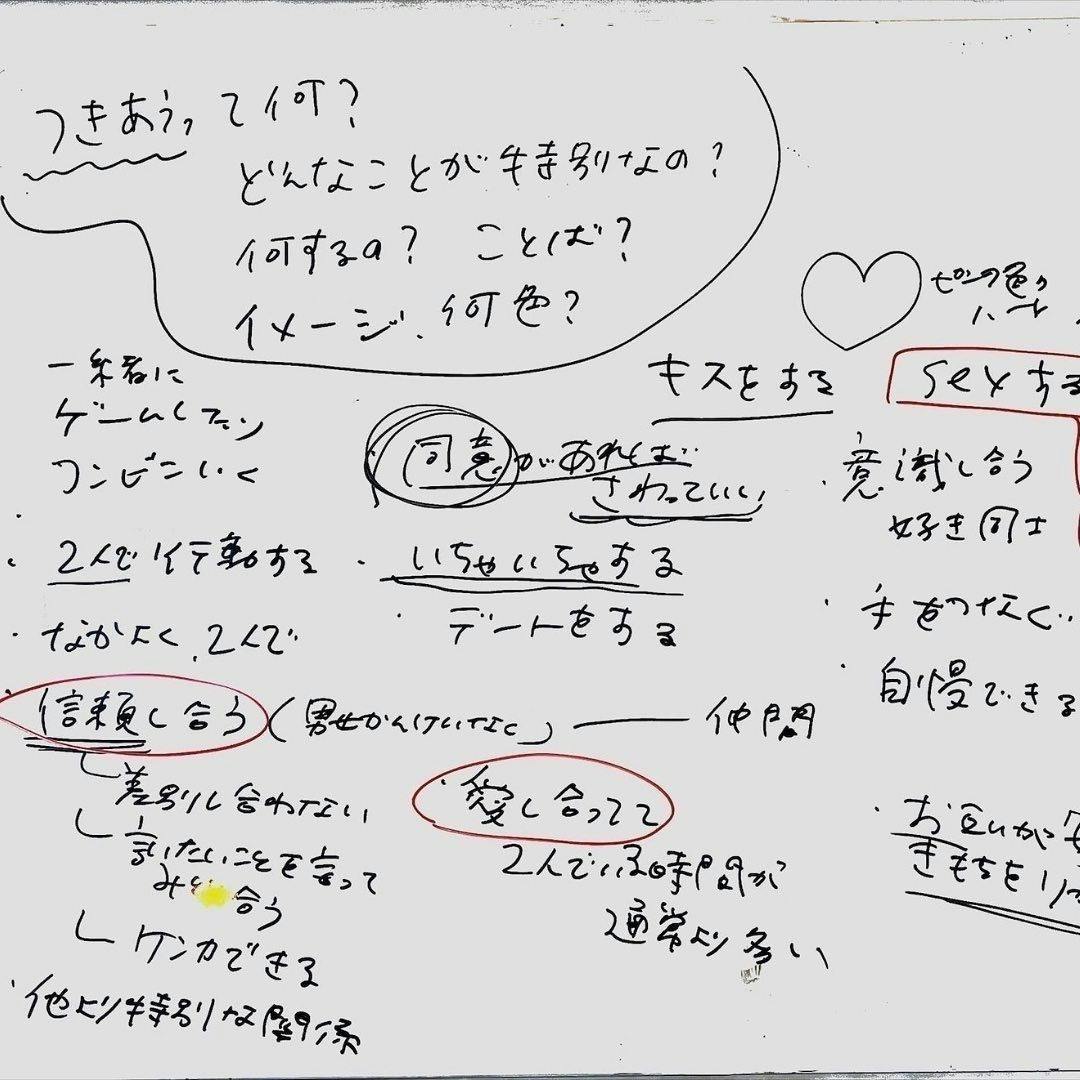 つきあうって何?
どんなことが特別なの?
何するの? ことば?
イメージ、何色?
ピンク色の
ハート
一緒に
ゲームしたり
コンビニいく
・2人で行動する
・なかよく、2人で
・信頼し合う(男女かんけいなく)―仲間
差別し合わない
言いたいことを言って
合う
ケンカできる
・他より特別な関係
キスをする
同意があれば
さわっていい
・いちゃいちゃする
・デートをする
・愛し合ってて
2人でいる時間が
通常より多い
sexする
・意識し合う
好き同士
・手をつなぐ
・自慢できる
・お互いが
きもちを